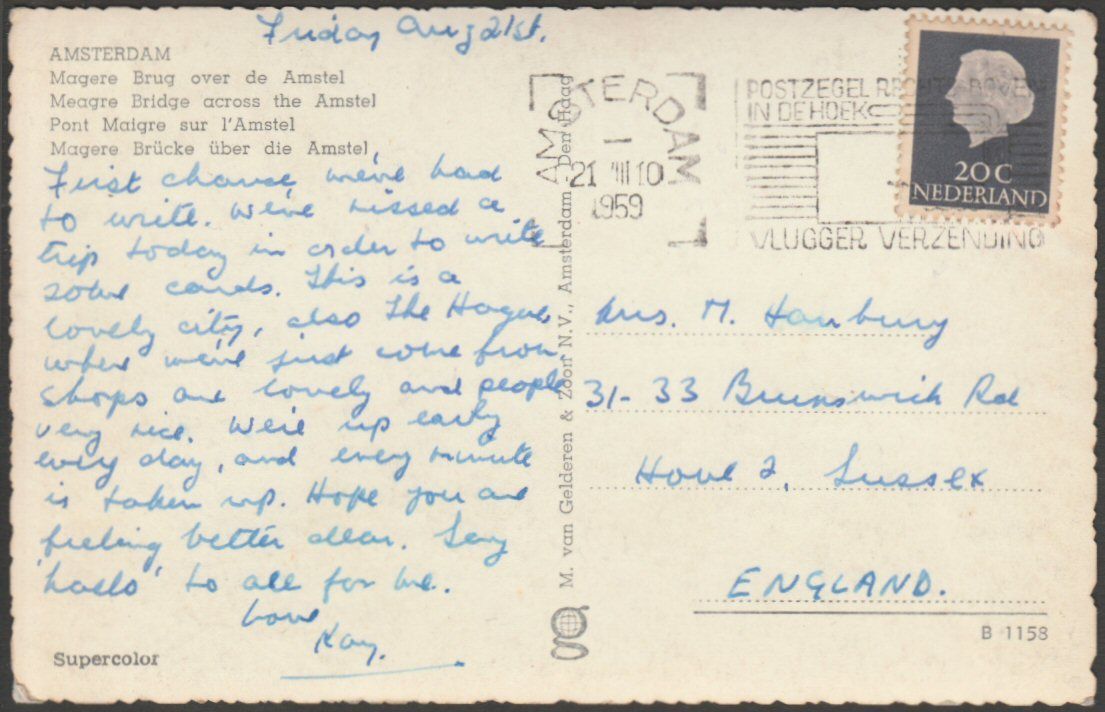 Friday Aug 21st.
AMSTERDAM
Magere Brug over de Amstel
Meagre Bridge across the Amstel
Pont Maigre sur l'Amstel
Magere Brücke über die Amstel
First chance we've had
to write. We've missed a
trip today in order to write
some cards. This is a
lovely city, also The Hague,
where we've just come from
Shops are lovely and people
very nice. We're up early
every day, and every minute
is taken up. Hope you are
feeling better dear. Say
'hallo' to all for me.
Love
Kay.
Supercolor
M. van Gelderen & Zoon N.V., Amsterdam - Den Haag
AMSTERDAM
21 VIII 10
1959
POSTZEGEL RECHTS BOVEN
IN DE HOEK
VLUGGER VERZENDING
20 C
NEDERLAND
Mrs. M. Hanbury
31-33 Brunswick Rd
Hove 2, Sussex
ENGLAND.
B 1158